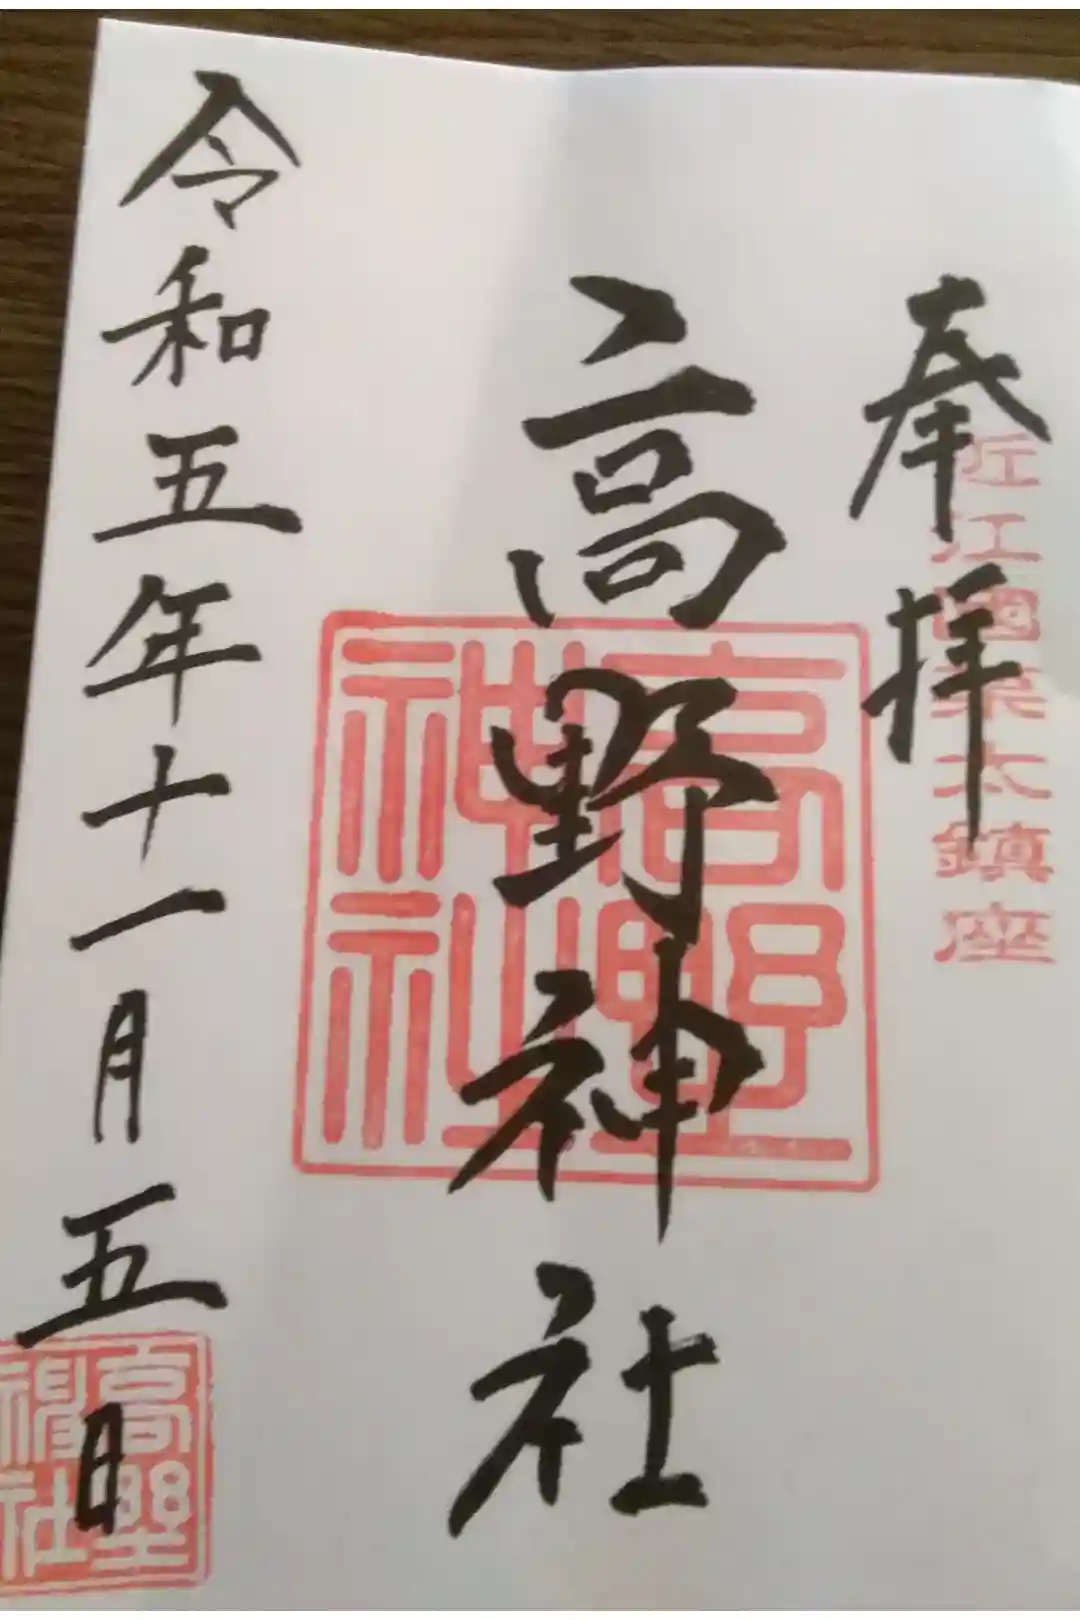 奉拝
近江國栗太鎮座
高野神社
高野神社
令和五年十一月五日
高野神社